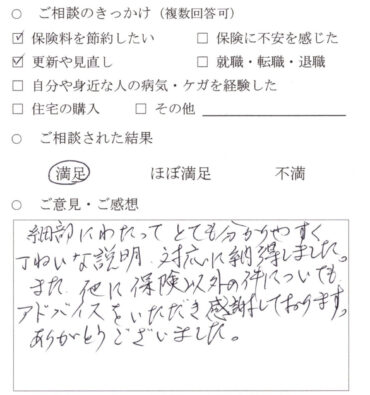 ○ ご相談のきっかけ（複数回答可）
☑ 保険料を節約したい □ 保険に不安を感じた
☑ 更新や見直し □ 就職・転職・退職
□ 自分や身近な人の病気・ケガを経験した
□ 住宅の購入 □ その他
○ ご相談された結果
満足 ほぼ満足 不満
○ ご意見・ご感想
細部にわたってとても分かりやすく
丁ねいな説明、対応に納得しました。
また、他に保険以外の件についても
アドバイスをいただき感謝しております。
ありがとうございました。